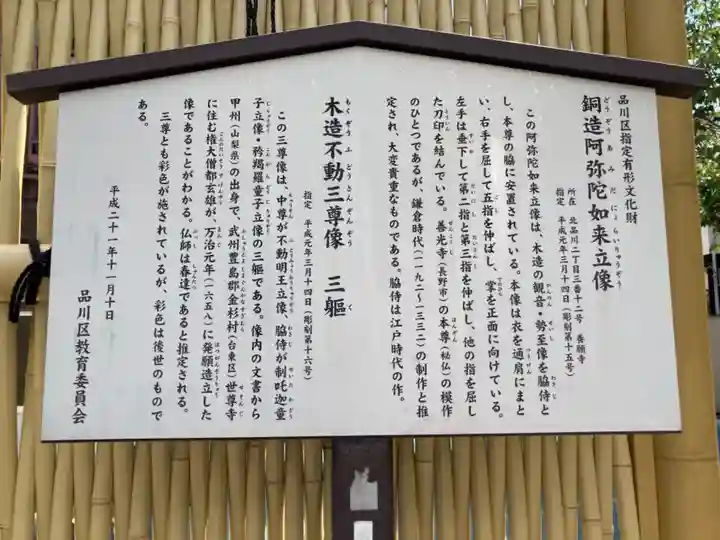 品川区指定有形文化財
銅造阿弥陀如来立像
所在 北品川二丁目三番十二号 養願寺
指定 平成元年三月十四日(彫刻第十五号)
この阿弥陀如来立像は、木造の観音・勢至像を脇侍と
し、本尊の脇に安置されている。本像は衣を通肩にまと
い、右手を屈して五指を伸ばし、掌を正面に向けている。
左手は垂下して第二指と第三指を伸ばし、他の指を屈し
た刀印を結んでいる。善光寺(長野市)の本尊(秘仏)の模作
のひとつであるが、鎌倉時代(一一九二〜一三三三)の制作と推
定され、大変貴重なものである。脇侍は江戸時代の作。
木造不動三尊像 三軀
指定 平成元年三月十四日(彫刻第十六号)
この三尊像は、中尊が不動明王立像、脇侍が制吒迦童
子立像・矜羯羅童子立像の三軀である。像内の文書から
甲州(山梨県)の出身で、武州豊島郡金杉村(台東区)世尊寺
に住む権大僧都玄雄が、万治元年(一六五八)に発願造立した
像であることがわかる。仏師は春達であると推定される。
三尊とも彩色が施されているが、彩色は後世のもので
ある。
平成二十一年十一月十日
品川区教育委員会